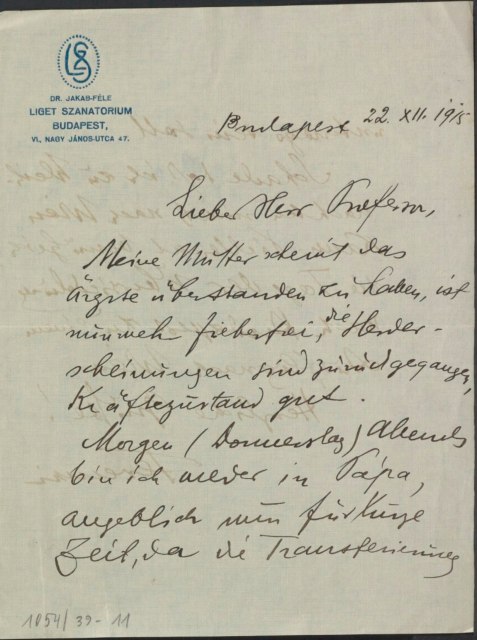 LSB
DR. JAKAB-FÉLE
LIGET SZANATORIUM
BUDAPEST,
VI., NAGY JÁNOS-UTCA 47.
Budapest 22. XII. 1915
Lieber Herr Professor,
Meine Mutter scheint das
ärgste überstanden zu haben, ist
nunmehr fieberfrei, die Herder-
scheinungen sind zurückgegangen,
Kräftezustand gut.
Morgen (Donnerstag) Abends
bin ich wieder in Pápa,
angeblich nur für kurze
Zeit, da die Transferierung
1054/39-11